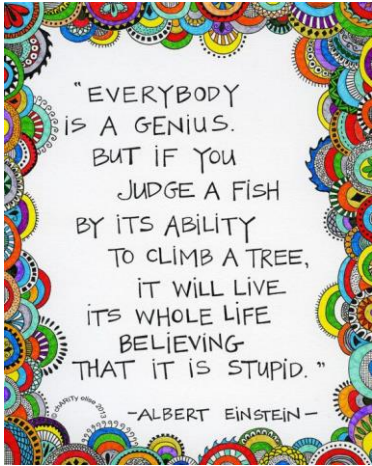 "EVERYBODY
iS A GENiUS.
BUT iF YOU
JUDGE A FiSH
BY iTS ABiLiTY
TO CLiMB A TREE,
iT WiLL LiVE
iTS WHOLE LiFE
BELiEViNG
THAT iT iS STUPiD."
-ALBERT EiNSTEiN-
© chARiTy elise 2013